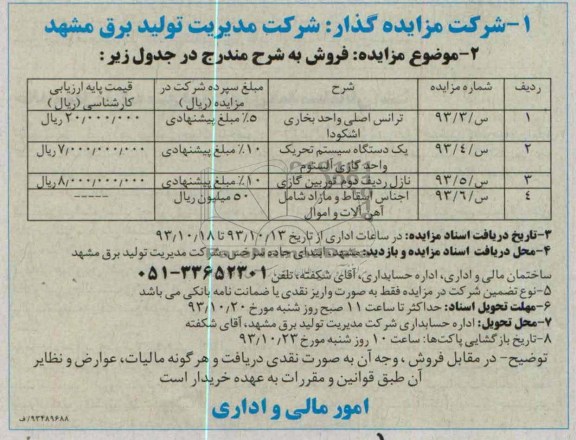 ۱-شرکت مزایده گذار: شرکت مدیریت تولید برق مشهد
۲-موضوع مزایده: فروش به شرح مندرج در جدول زیر:
ردیف شماره مزایده شرح مبلغ سپرده شرکت در مزایده (ریال) قیمت پایه ارزیابی کارشناسی (ریال)
۱ س/۹۳/۳ ترانس اصلی واحد بخاری اشکودا ۵٪ مبلغ پیشنهادی ۲۰/۰۰۰/۰۰۰/۰۰۰ ریال
۲ س/۹۳/۴ یک دستگاه سیستم تحریک واحد گازی آلستوم ۱۰٪ مبلغ پیشنهادی ۷/۰۰۰/۰۰۰/۰۰۰ ریال
۳ س/۹۳/۵ نازل ردیف دوم توربین گازی ۱۰٪ مبلغ پیشنهادی ۸/۰۰۰/۰۰۰/۰۰۰ ریال
۴ س/۹۳/۶ اجناس اسقاط و مازاد شامل آهن آلات و اموال ۵۰ میلیون ریال -----
۳-تاریخ دریافت اسناد مزایده: در ساعات اداری از تاریخ ۹۳/۱۰/۱۳ تا ۹۳/۱۰/۱۸
۴-محل دریافت اسناد مزایده و بازدید: مشهد، ابتدای جاده سرخس، شرکت مدیریت تولید برق مشهد
ساختمان مالی و اداری، اداره حسابداری، آقای شکفته، تلفن ۳۳۶۵۲۳۰۱-۰۵۱
۵-نوع تضمین شرکت در مزایده فقط به صورت واریز نقدی یا ضمانت نامه بانکی می باشد
۶-مهلت تحویل اسناد: حداکثر تا ساعت ۱۱ صبح روز شنبه مورخ ۹۳/۱۰/۲۰
۷-محل تحویل: اداره حسابداری شرکت مدیریت تولید برق مشهد، آقای شکفته
۸-تاریخ بازگشایی پاکت‌ها: ساعت ۱۰ روز شنبه مورخ ۹۳/۱۰/۲۳
توضیح- در مقابل فروش، وجه آن به صورت نقدی دریافت و هر گونه مالیات، عوارض و نظایر
آن طبق قوانین و مقررات به عهده خریدار است
امور مالی و اداری
۹۳۴۸۹۶۸۸/ف